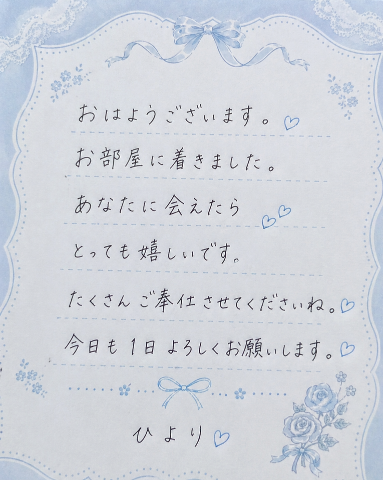 おはようございます。♡
お部屋に着きました。
あなたに会えたら♡♡
とっても嬉しいです。
たくさんご奉仕させてくださいね。♡
今日も1日よろしくお願いします。♡
ひより♡